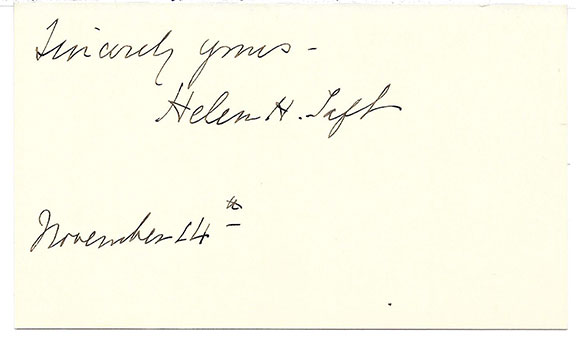 Sincerely yours -
Helen H. Taft
November 14th